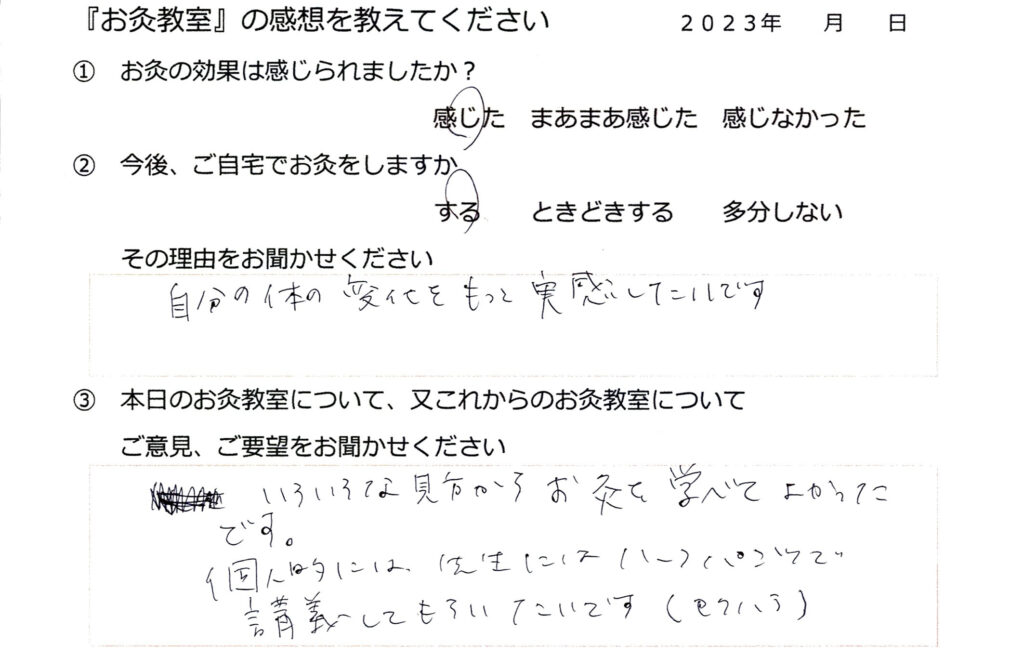 『お灸教室』の感想を教えてください　2023年　月　日
① お灸の効果は感じられましたか？
感じた　まあまあ感じた　感じなかった
② 今後、ご自宅でお灸をしますか
する　ときどきする　多分しない
その理由をお聞かせください
自分の体の変化をもっと実感したいです
③ 本日のお灸教室について、又これからのお灸教室について
ご意見、ご要望をお聞かせください
いろいろな見方からお灸を学べてよかった
です。
個人的には、先生にはハーフパンツで
講義してもらいたいです（セクハラ）